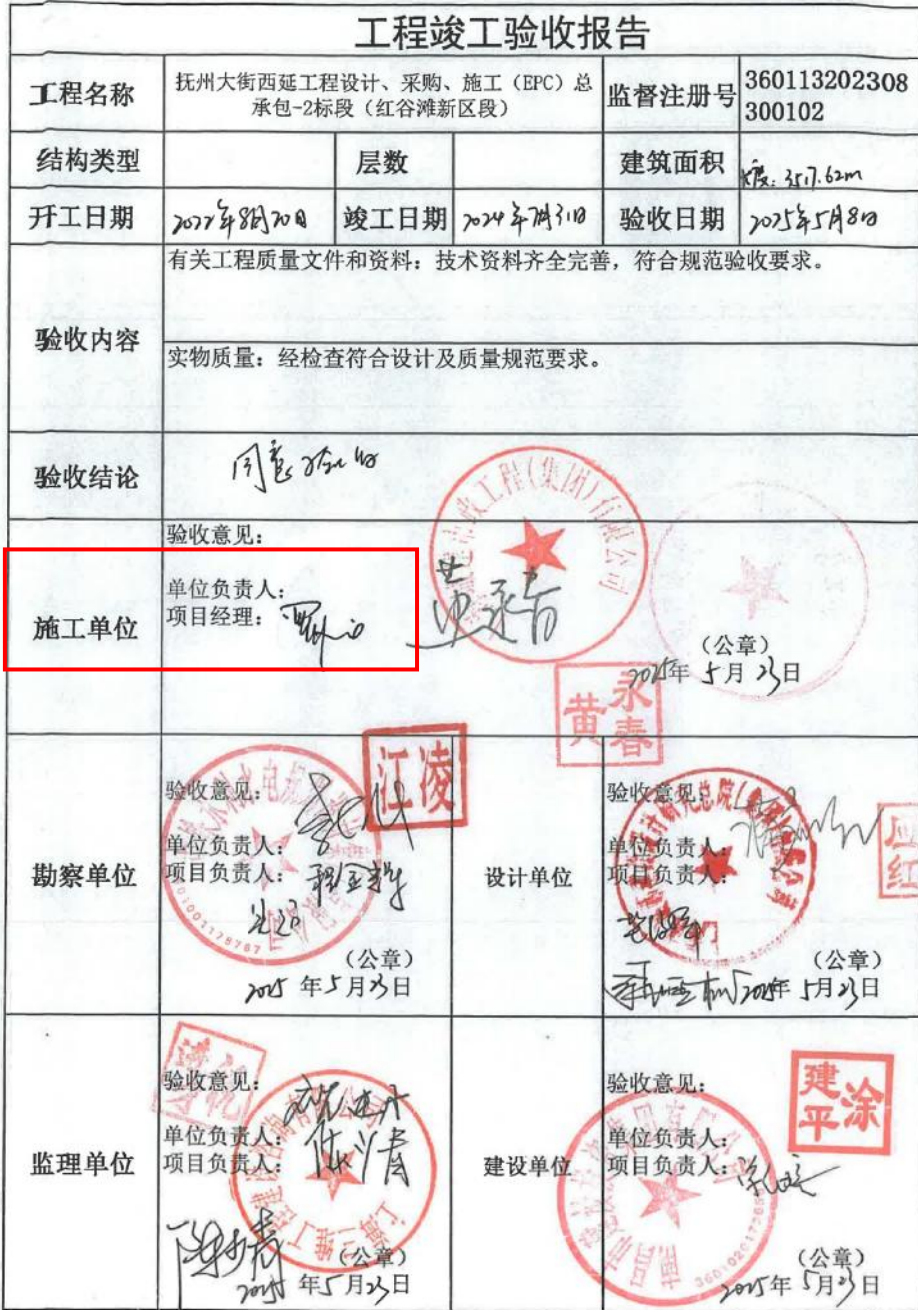 工程竣工验收报告
工程名称 抚州大街西延工程设计、采购、施工（EPC）总承包-2标段（红谷滩新区段） 监督注册号 360113202308300102
结构类型 层数 建筑面积 3517.62m
开工日期 2022年8月20日 竣工日期 2024年7月31日 验收日期 2025年5月8日
验收内容
有关工程质量文件和资料：技术资料齐全完善，符合规范验收要求。
实物质量：经检查符合设计及质量规范要求。
验收结论 同意验收
施工单位
验收意见：
单位负责人：
项目经理：
市政工程(集团)有限公司
（公章）
2025年5月23日
黄永春
勘察单位
验收意见：
单位负责人：
项目负责人：
江凌
（公章）
2025年5月23日
设计单位
验收意见：
单位负责人：
项目负责人：
应红
（公章）
2025年5月23日
监理单位
验收意见：
单位负责人：
项目负责人：
（公章）
2025年5月23日
建设单位
验收意见：
单位负责人：
项目负责人：
涂建平
（公章）
2025年5月23日